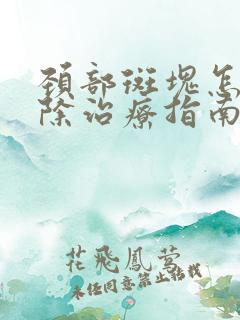 颈部斑塊怎
除治療指南
花飛鳳萼
未经同意禁止转载